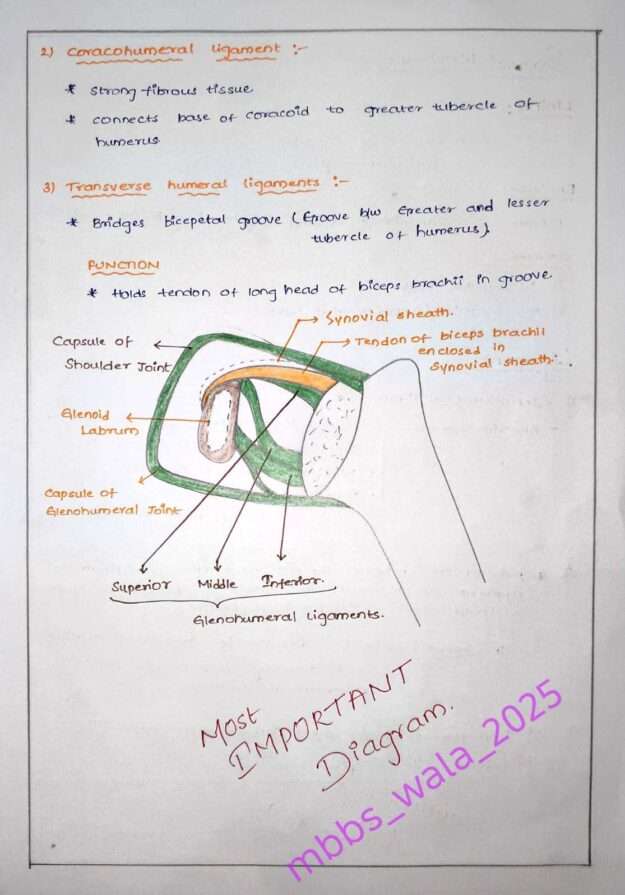 2) Coracohumeral ligament :-
* Strong fibrous tissue
* connects base of coracoid to greater tubercle of
humerus
3) Transverse humeral ligaments :-
* Bridges bicepetal groove (Groove b/w Greater and lesser
tubercle of humerus)
FUNCTION
* Holds tendon of long head of biceps brachii in groove
Synovial sheath.
Capsule of
Shoulder Joint
Tendon of biceps brachii
enclosed in
Synovial sheath.
Glenoid
Labrum
Capsule of
Glenohumeral Joint
Superior Middle Inferior.
Glenohumeral ligaments.
Most
IMPORTANT
Diagram.
mbbs_wala_2025